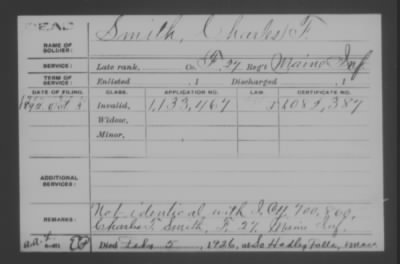 DEAD
Smith, Charles F.
NAME OF SOLDIER:
SERVICE: Late rank, Co. F. 27 Reg't Maine Inf
TERM OF SERVICE: Enlisted , 1 Discharged , 1
DATE OF FILING. CLASS. APPLICATION NO. LAW. CERTIFICATE NO.
1892 Oct Invalid, 1,133,467 1089,387
Widow,
Minor,
ADDITIONAL SERVICES:
REMARKS: Not identical with I. 700,800,
Charles F. Smith, F. 27 Maine Inf.
Died 5, 1926, at So Hadley Falls, Mass